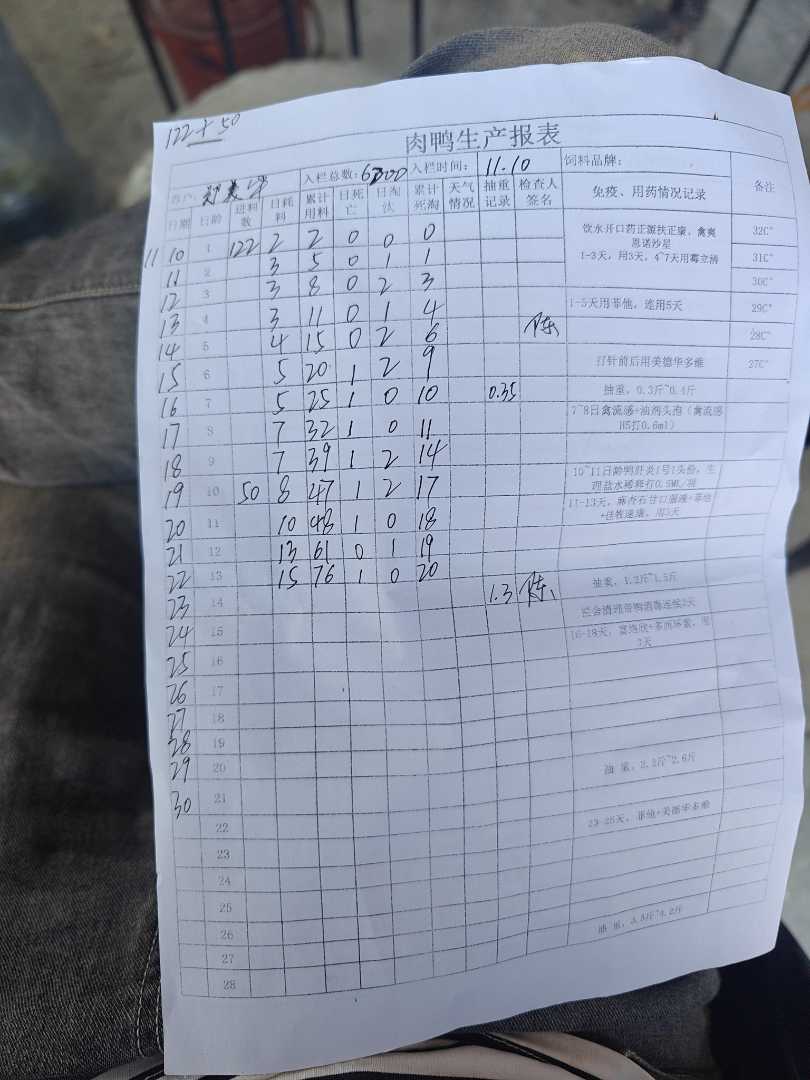 122+50
肉鸭生产报表
客户: 入栏总数: 入栏时间: 11.10 饲料品牌:
日期 日龄 进料数 日耗料 累计用料 日死亡 日淘汰 累计死淘 天气情况 抽重记录 检查人签名 免疫、用药情况记录 备注
11 10 1 122 2 2 0 0 0 饮水开口药正源扶正康、禽爽 恩诺沙星 32C°
11 2 3 5 0 1 1 1-3天,用3天,4~7天用霉立清 31C°
12 3 3 8 0 2 3 30C°
13 4 3 11 0 1 4 1-5天用菲他,连用5天 29C°
14 5 4 15 0 2 6 陈 28C°
15 6 5 20 1 2 9 打针前后用美德华多维 27C°
16 7 5 25 1 0 10 0.35 抽重,0.3斤~0.4斤
17 8 7 32 1 0 11 7~8日禽流感+油剂头孢(禽流感H5打0.6ml)
18 9 7 39 1 2 14
19 10 50 8 47 1 2 17 10~11日龄鸭肝炎1号1头份,生理盐水稀释打0.5ML/羽
20 11 10 48 1 0 18 11-13天,麻杏石甘口服液+菲他
21 12 13 61 0 1 19
22 13 15 76 1 0 20
23 14 1.3 陈 抽重,1.2斤~1.5斤
24 15
25 16 16-18天,
26 17
27 18
28 19
29 20
30 21 抽重,2.2斤~2.6斤
22
23 23-25天,菲他+美德华多维
24
25
26
27
28 抽重,